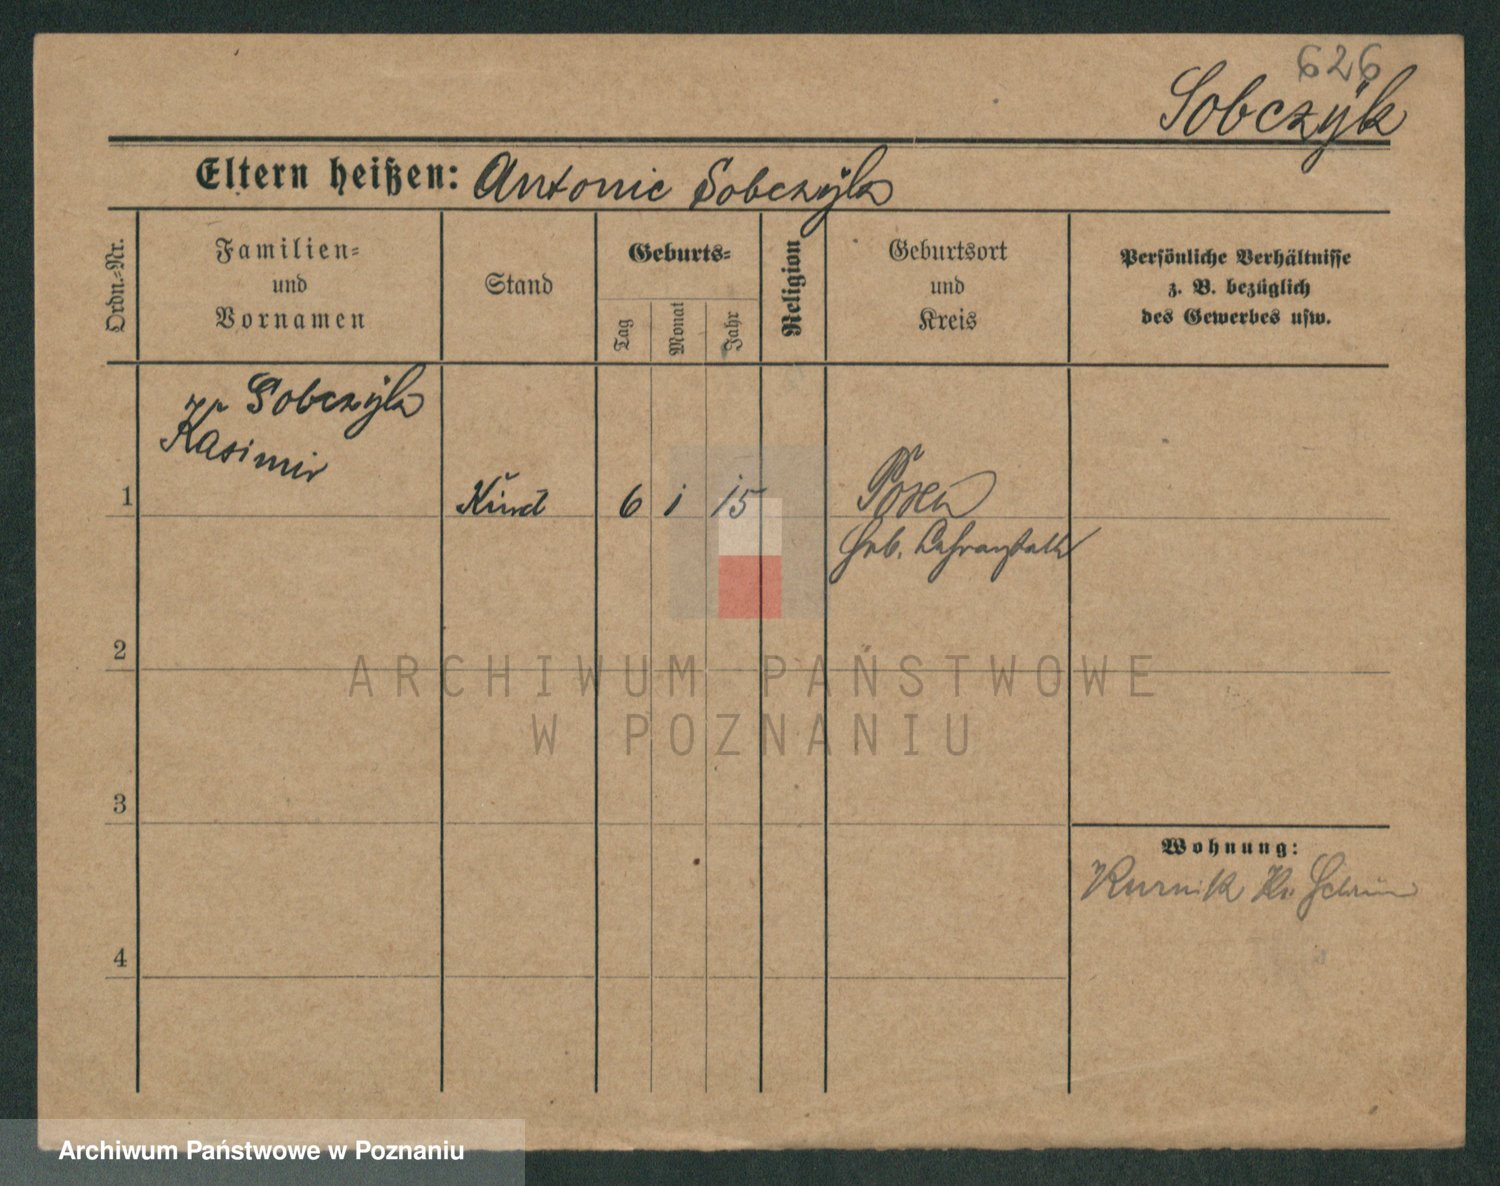 626
Sobczÿk
Eltern heißen: Antonie Sobczÿk
Ordn.-Nr.
Familien-
und
Vornamen
Stand
Geburts-
Tag
Monat
Jahr
Religion
Geburtsort
und
Kreis
Persönliche Verhältnisse
z. B. bezüglich
des Gewerbes usw.
Sobczÿk
Kasimir
1
Kind
6
1
15
Posen
Heb. Lehranstalt
2
ARCHIWUM PAŃSTWOWE
W POZNANIU
3
Wohnung:
Kurnik Kr.
4
Archiwum Państwowe w Poznaniu